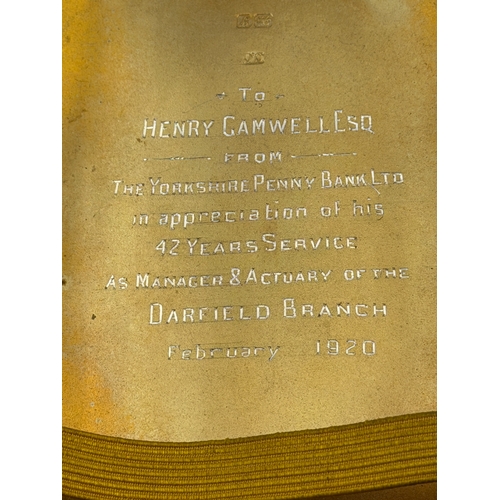 To
HENRY GAMWELL ESQ
FROM
THE YORKSHIRE PENNY BANK LTD
in appreciation of his
42 YEARS SERVICE
AS MANAGER & ACTUARY OF THE
DARFIELD BRANCH
February 1920